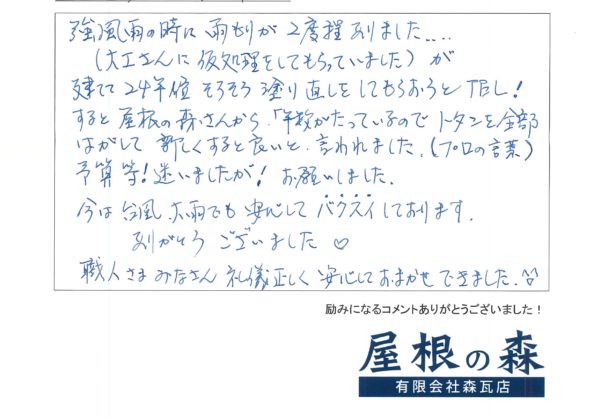 強風雨の時に雨もりが2度程ありました....
(大工さんに仮処理をしてもらっていました)が
建てて24年位 そろそろ塗り直しをしてもらおうとTEL!
すると屋根の森さんから、「年数がたっているのでトタンを全部
はがして新しくすると良いと、言われました。(プロの言葉)
予算等!迷いましたが! お願いしました.
今は台風、大雨でも安心してバクスイしております.
ありがとうございました♡
職人さまみなさん礼儀正しく安心しておまかせできました.
励みになるコメントありがとうございました!
屋根の森
有限会社森瓦店